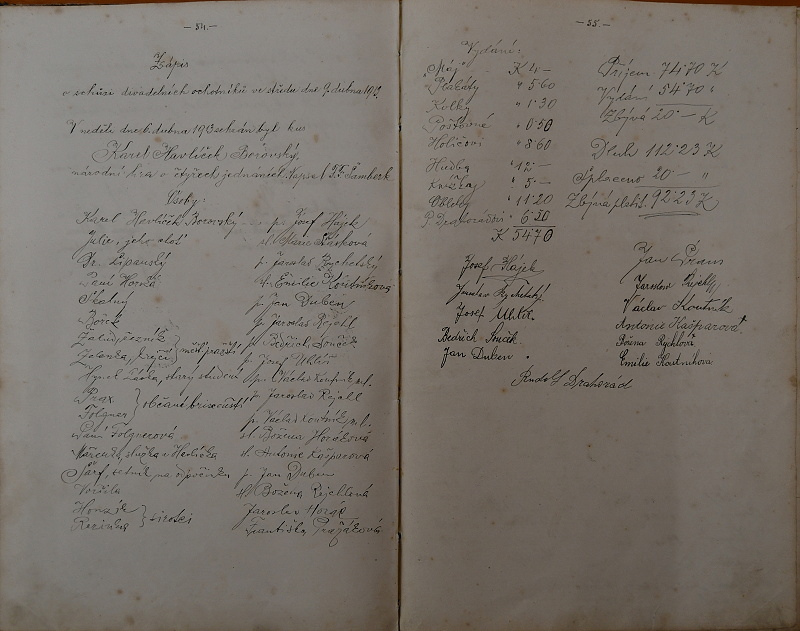 — 54. —
Zápis
o schůzi divadelních ochotníků ve středu dne 9. dubna 1913.
V neděli dne 6. dubna 1913 sehrán byl kus
Karel Havlíček Borovský,
národní hra v čtyřech jednáních. Sepsal F. F. Šamberk
Osoby:
Karel Havlíček Borovský — p. Josef Hájek
Julie, jeho choť sl. Marie
Dr. Lipanský p. Jaroslav Rychetský
Paní Horská sl. Emilie Koutníková
Šťastný p. Jan Duben
Bořek p. Jaroslav Rejchl
řezník p. Bedřich Souček
Zelenka, krejčí } měšť. pražští p. Josef
Hynek starý student p. Václav Koutník ml.
Prax p. Jaroslav Rejchl
Folgner } občané brixenští p. Václav Koutník ml.
Paní Folgnerová sl. Božena Horáková
služka u Havlíčka sl. Antonie Kašparová
setník na odpočinku p. Jan Duben
Voršila sl. Božena Rejchlová
Honzík Jaroslav Horák
Rozinka } sirotci Františka Pražáková
— 55. —
Vydání:
„Máj" K 4·—
Plakáty " 5·60
Kolky " 1·30
Poštovné " 0·50
Holičovi " 8·60
Hudba " 12·—
" 5·—
Obleky " 11·20
P. Drahorádovi 6·50
K 54·70
Příjem 74·70 K
Vydání 54·70 "
Zbývá 20·— K
Dluh 112·23 K
Splaceno 20·— "
Zbývá platit. 92·23 K
Josef Hájek
Jan
Jaroslav Rychetský
Jaroslav Rejchl
Josef
Václav Koutník
Bedřich Souček
Antonie Kašparová
Jan Duben
Božena Rychlová
Emilie Koutníková
Rudolf Drahorád